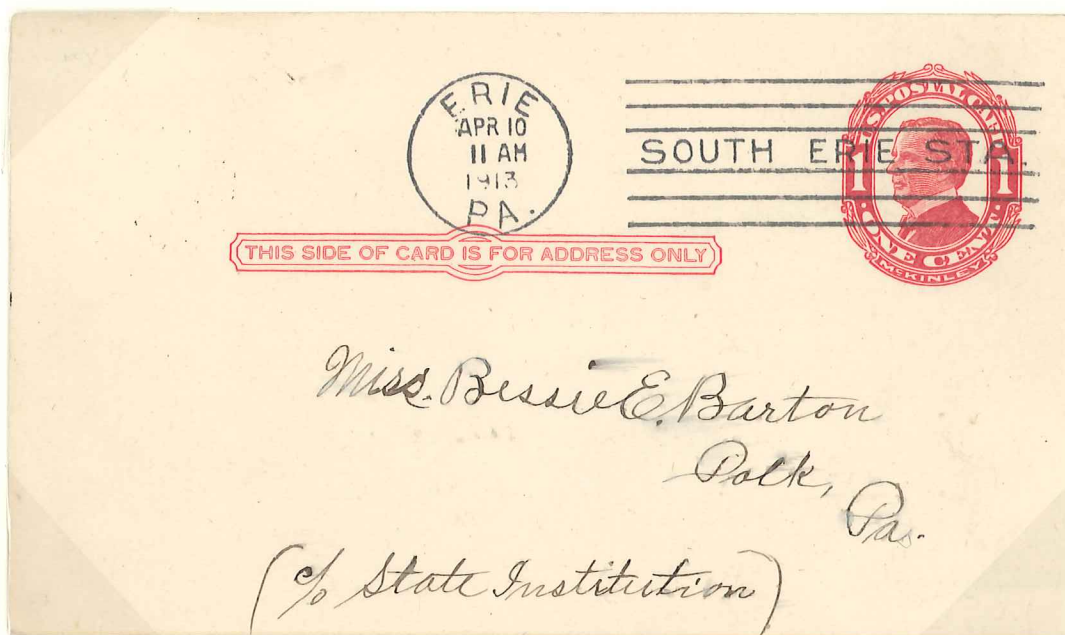 ERIE
APR 10
11 AM
1913
PA.
SOUTH ERIE STA.
U.S. POSTAL CARD
1 1
· ONE CENT ·
McKINLEY
THIS SIDE OF CARD IS FOR ADDRESS ONLY
Miss. Bessie E. Barton
Polk,
Pa.
(c/o State Institution)